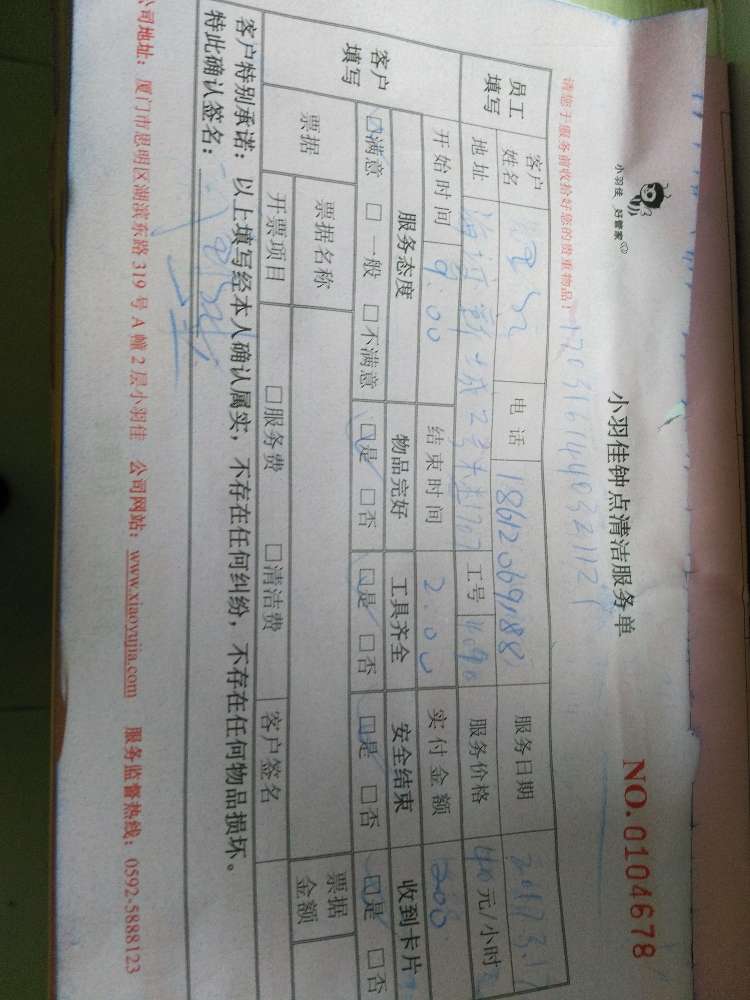 小羽佳 好管家
小羽佳钟点清洁服务单
NO. 0104678
请您于服务前收拾好您的贵重物品!
员工填写 客户姓名 电话 服务日期 2017.3.1
地址 工号 服务价格 40元/小时
客户填写 开始时间 9:00 结束时间 2:00 实付金额 200
服务态度 物品完好 工具齐全 安全结束 收到卡片
☑满意 □一般 □不满意 ☑是 □否 ☑是 □否 ☑是 □否 ☑是 □否
票据 票据名称 票据金额
开票项目 □服务费 □清洁费 客户签名
客户特别承诺:以上填写经本人确认属实,不存在任何纠纷,不存在任何物品损坏。
特此确认签名:
公司地址:厦门市思明区湖滨东路 319 号 A 幢 2 层小羽佳 公司网站:www.xiaoyujia.com 服务监督热线:0592-5888123